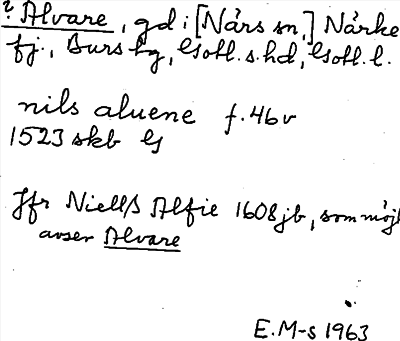 ? Alvare, gd i [Närs sn,] Närke
fj., Burs hg, Gotl. s. hd, Gotl. l.
nils aluene f. 46v
1523 skb G
Jfr Niellß Alfie 1608 jb, som möjl
avser Alvare
E.M-s 1963